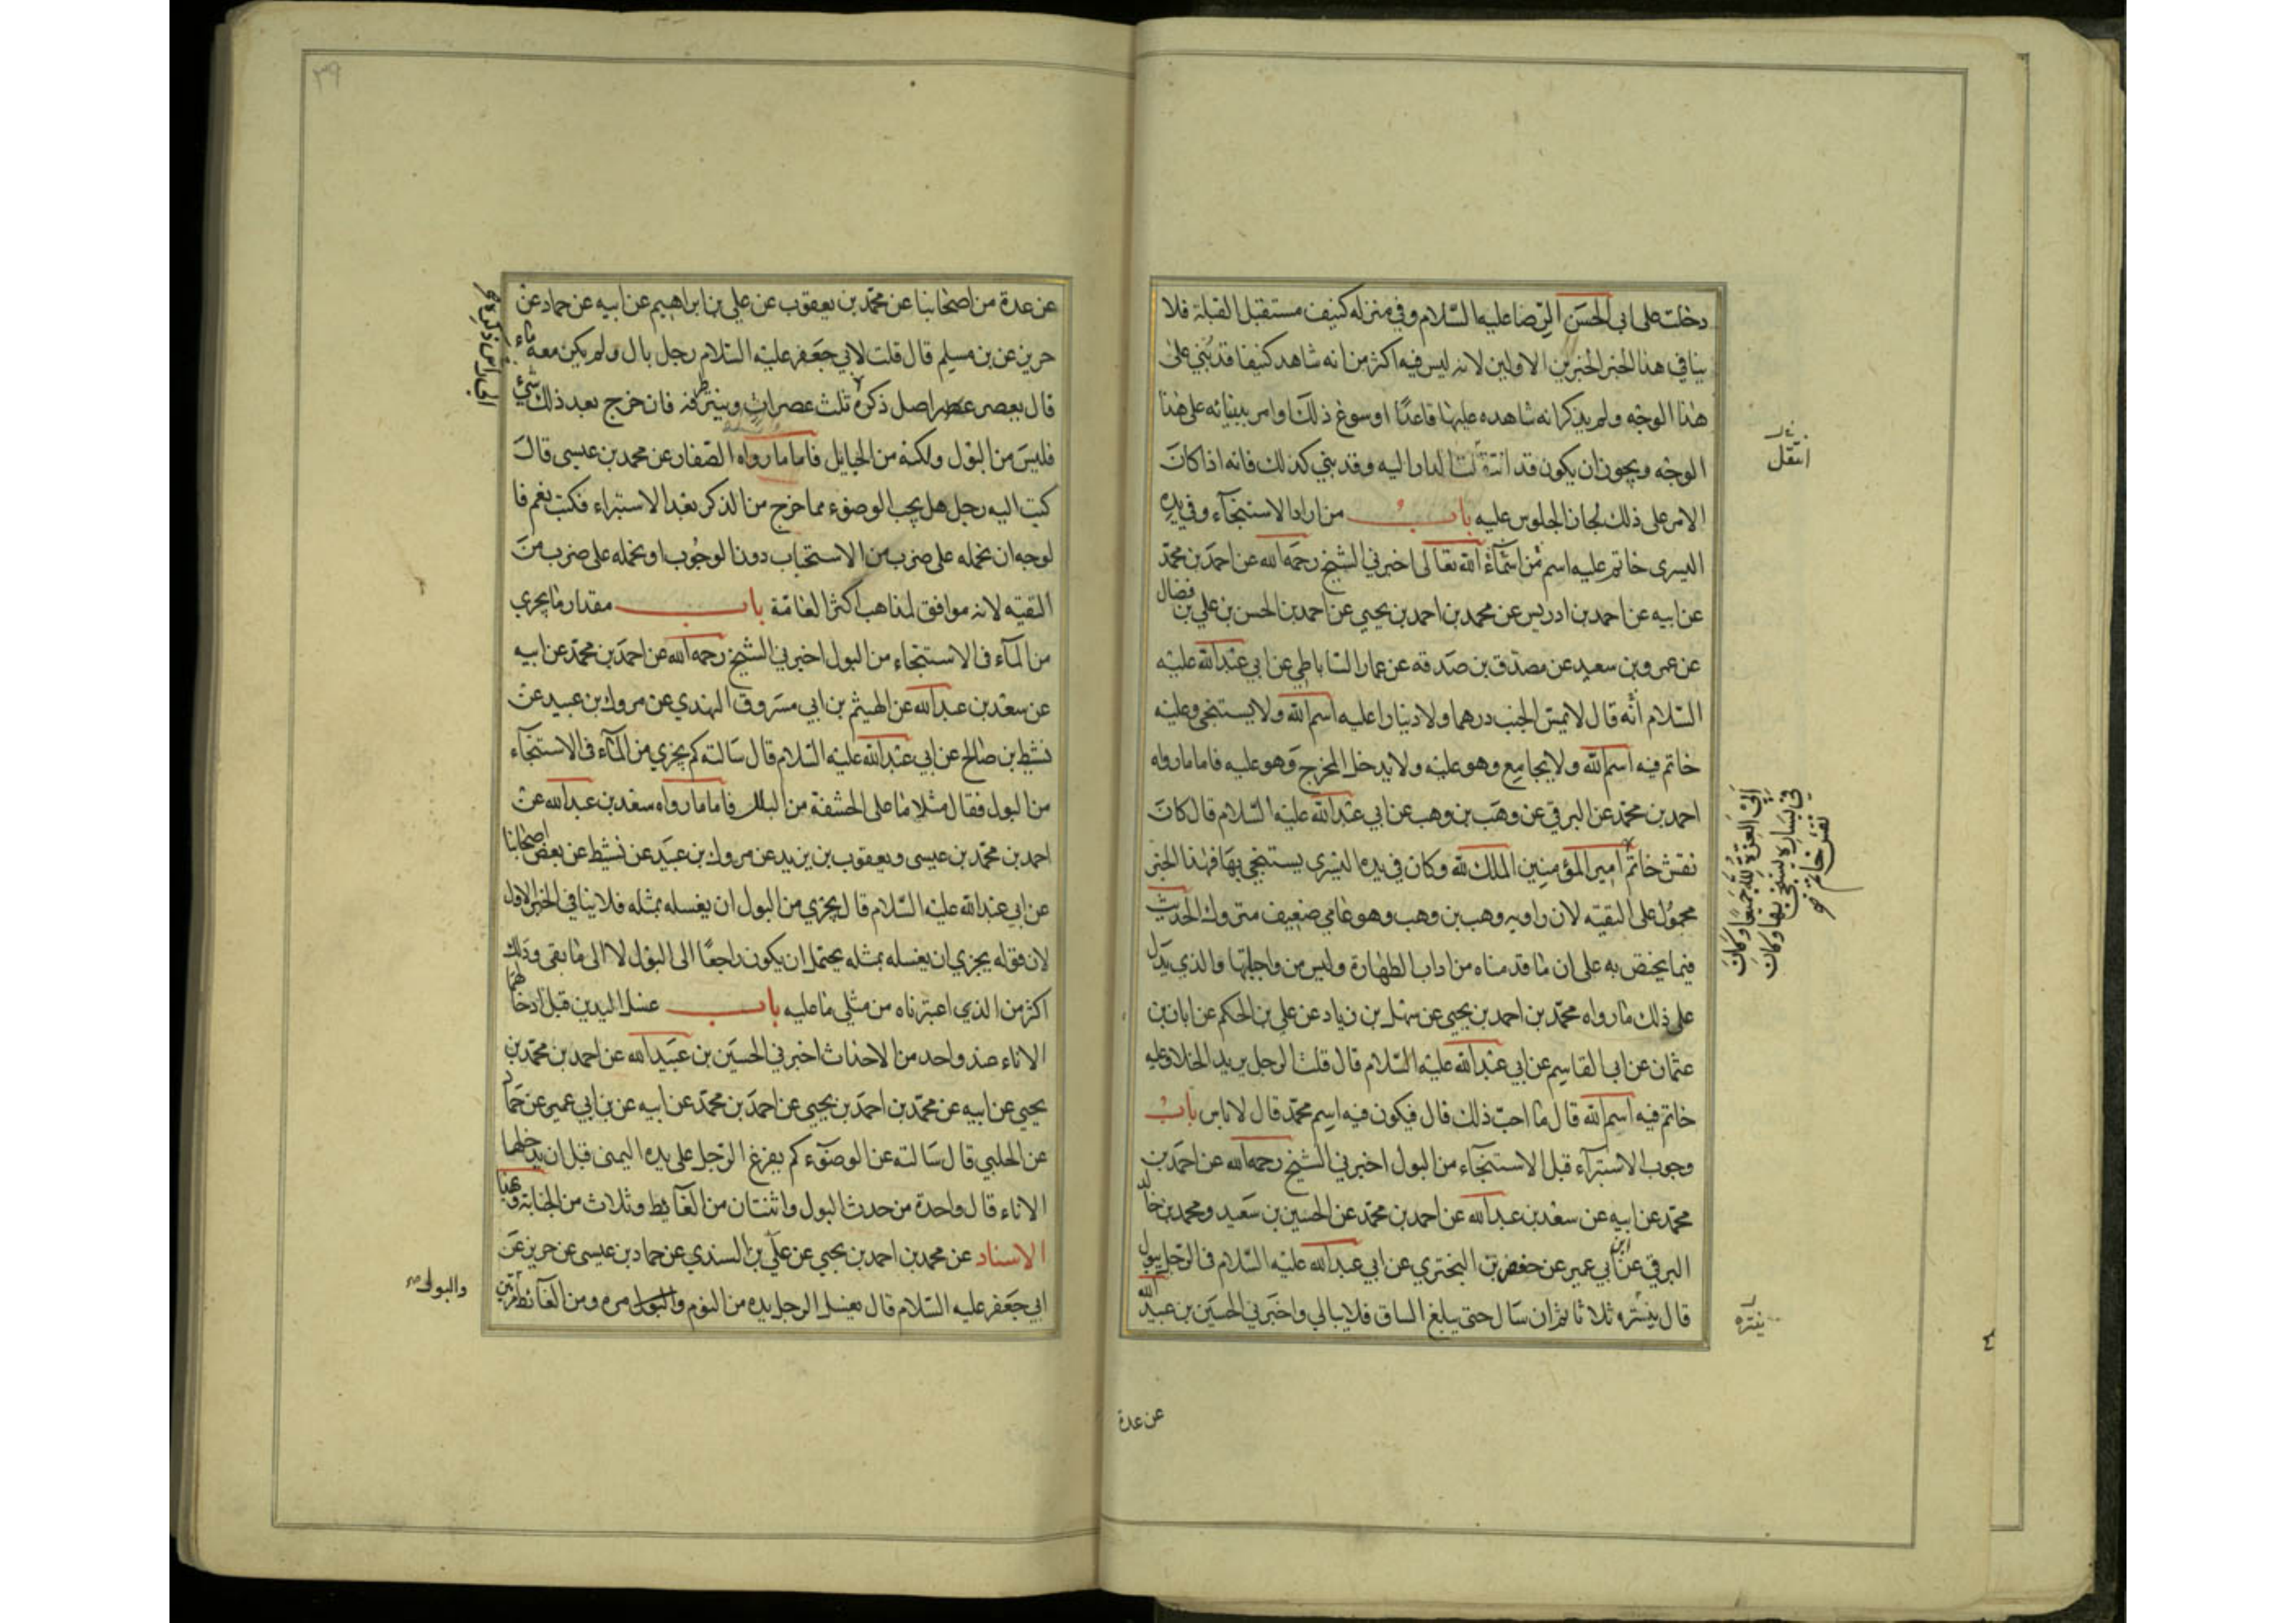 دخلت على ابي الحسن الرضا عليه السلام وفي منزله كنيف مستقبل القبلة فلا
ينافي هذا الخبر الخبرين الاولين لانه ليس فيه اكثر من انه شاهد كنيفا قد بني على
هذا الوجه ولم يذكر انه شاهده عليها قاعدًا او سوغ ذلك وامر ببنيانه على هذا
الوجه ويجوز ان يكون قد انتقلت الدار اليه وقد بني كذلك فانه اذا كان
انتقل
الامر على ذلك لجاز الجلوس عليه باب من اراد الاستنجآء وفي يده
اليسرى خاتم عليه اسم من اسمآء الله تعالى اخبرني الشيخ رحمه الله عن احمد بن محمد
عن ابيه عن احمد بن ادريس عن محمد بن احمد بن يحيى عن احمد بن الحسن بن علي بن فضال
عن عمرو بن سعيد عن مصدق بن صدقه عن عمار الساباطي عن ابي عبد الله عليه
السلام انه قال لا يمس الجنب درهما ولا دينارا عليه اسم الله ولا يستنجى وعليه
خاتم فيه اسم الله ولا يجامع وهو عليه ولا يدخل المخرج وهو عليه فاما ما رواه
احمد بن محمد عن البرقي عن وهب بن وهب عن ابي عبد الله عليه السلام قال كان
نقش خاتم امير المؤمنين الملك لله وكان في يده اليسرى يستنجي بها فهذا الخبر
ابي العزة لله جميعا وكان
في يساره يستنجي بها وكان
نقش خاتم
محمول على التقيه لان راويه وهب بن وهب وهو عامي ضعيف متروك الحديث
فيما يختص به على ان ما قدمناه من اداب الطهارة وليس من واجباتها والذي يدل
على ذلك ما رواه محمد بن احمد بن يحيى عن سهل بن زياد عن علي بن الحكم عن ابان بن
عثمان عن ابي القاسم عن ابي عبد الله عليه السلام قال قلت الرجل يريد الخلا وعليه
خاتم فيه اسم الله قال ما احب ذلك قال فيكون فيه اسم محمد قال لا باس باب
وجوب الاستبرآء قبل الاستنجآء من البول اخبرني الشيخ رحمه الله عن احمد بن
محمد عن ابيه عن سعد بن عبد الله عن احمد بن محمد عن الحسين بن سعيد ومحمد بن خالد
البرقي عن ابن ابي عمير عن حفص بن البختري عن ابي عبد الله عليه السلام في الرجل يبول
قال ينتره ثلاثا ثم ان سال حتى يبلغ الساق فلا يبالي واخبرني الحسين بن عبيد الله
ينتره
عن عدة
٣٩
عن عدة من اصحابنا عن محمد بن يعقوب عن علي بن ابراهيم عن ابيه عن حماد عن
حريز عن بن مسلم قال قلت لابي جعفر عليه السلام رجل بال ولم يكن معه ماء
قال يعصر اصل ذكره ثلث عصرات وينتر طرفه فان خرج بعد ذلك شيء
فليس من البول ولكنه من الحبايل فاما ما رواه الصفار عن محمد بن عيسى قال
كتب اليه رجل هل يجب الوضوء مما خرج من الذكر بعد الاستبراء فكتب نعم فا
لوجه ان نحمله على ضرب من الاستحباب دون الوجوب او نحمله على ضرب من
التقيه لانه موافق لمذاهب اكثر العامة باب مقدار ما يجزي
من المآء في الاستنجاء من البول اخبرني الشيخ رحمه الله عن احمد بن محمد عن ابيه
عن سعد بن عبد الله عن الهيثم بن ابي مسروق النهدي عن مروك بن عبيد عن
نشيط بن صالح عن ابي عبد الله عليه السلام قال سالته كم يجزي من المآء في الاستنجآء
من البول فقال مثلا ما على الحشفة من البلل فاما ما رواه سعد بن عبد الله عن
احمد بن محمد بن عيسى ويعقوب بن يزيد عن مروك بن عبيد عن نشيط عن بعض اصحابنا
عن ابي عبد الله عليه السلام قال يجزي من البول ان يغسله بمثله فلا ينافي الخبر الاول
لان قوله يجزي ان يغسله بمثله يحتمل ان يكون راجعًا الى البول لا الى ما بقى وذلك
اكثر من الذي اعتبرناه من مثلي ما عليه باب غسل اليدين قبل ادخالهما
الاناء عند واحد من الاحداث اخبرني الحسين بن عبيد الله عن احمد بن محمد بن
يحيى عن ابيه عن محمد بن احمد بن يحيى عن احمد بن محمد عن ابيه عن بن ابي عمير عن حماد
عن الحلبي قال سالته عن الوضوء كم يفرغ الرجل على يده اليمنى قبل ان يدخلها
الاناء قال واحدة من حدث البول واثنتان من الغآيط وثلاث من الجنابة وبهذا
الاسناد عن محمد بن احمد بن يحيى عن علي بن السندي عن حماد بن عيسى عن حريز عن
ابي جعفر عليه السلام قال يغسل الرجل يده من النوم والبول مرة ومن الغآئط مرتين
والبول